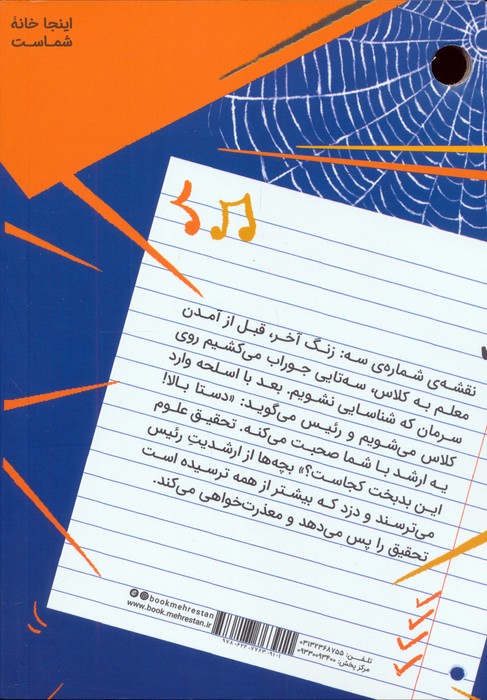 اینجا خانۀ
شماست
نقشه‌ی شماره‌ی سه: زنگ آخر، قبل از آمدن
معلم به کلاس، سه‌تایی جوراب می‌کشیم روی
سرمان که شناسایی نشویم. بعد با اسلحه وارد
کلاس می‌شویم و رئیس می‌گوید: «دستا بالا!
یه ارشد با شما صحبت می‌کنه. تحقیق علوم
این بدبخت کجاست؟» بچه‌ها از ارشدیتِ رئیس
می‌ترسند و دزد که بیشتر از همه ترسیده است
تحقیق را پس می‌دهد و معذرت‌خواهی می‌کند.
@bookmehrestan
www.book.mehrestan.ir
تلفن: ۰۳۱۳۲۳۶۸۷۵۵
مرکز پخش: ۰۹۳۳۰۰۹۳۴۰۰
۹۷۸-۶۲۲-۷۷۶۳-۹۱-۹